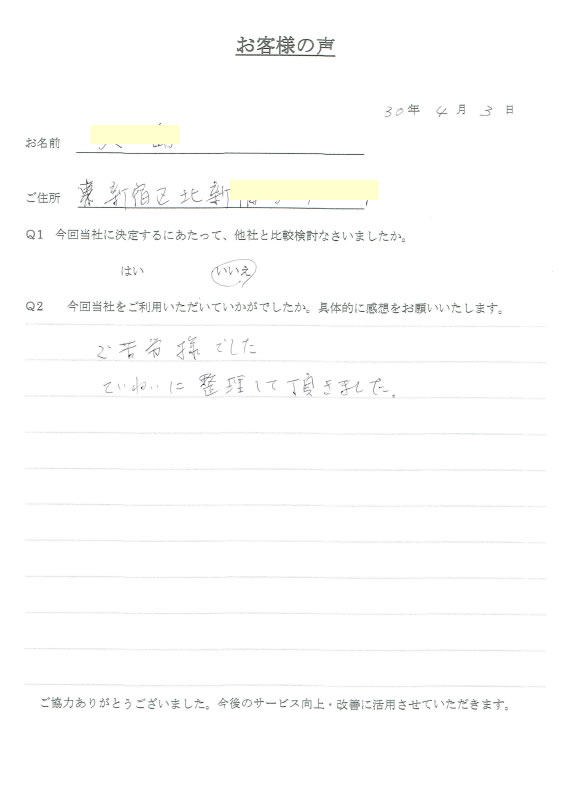 お客様の声
30年 4月 3日
お名前
ご住所 東 新宿区北新
Q1 今回当社に決定するにあたって、他社と比較検討なさいましたか。
はい いいえ
Q2 今回当社をご利用いただいていかがでしたか。具体的に感想をお願いいたします。
ご苦労様でした
ていねいに整理して頂きました。
ご協力ありがとうございました。今後のサービス向上・改善に活用させていただきます。